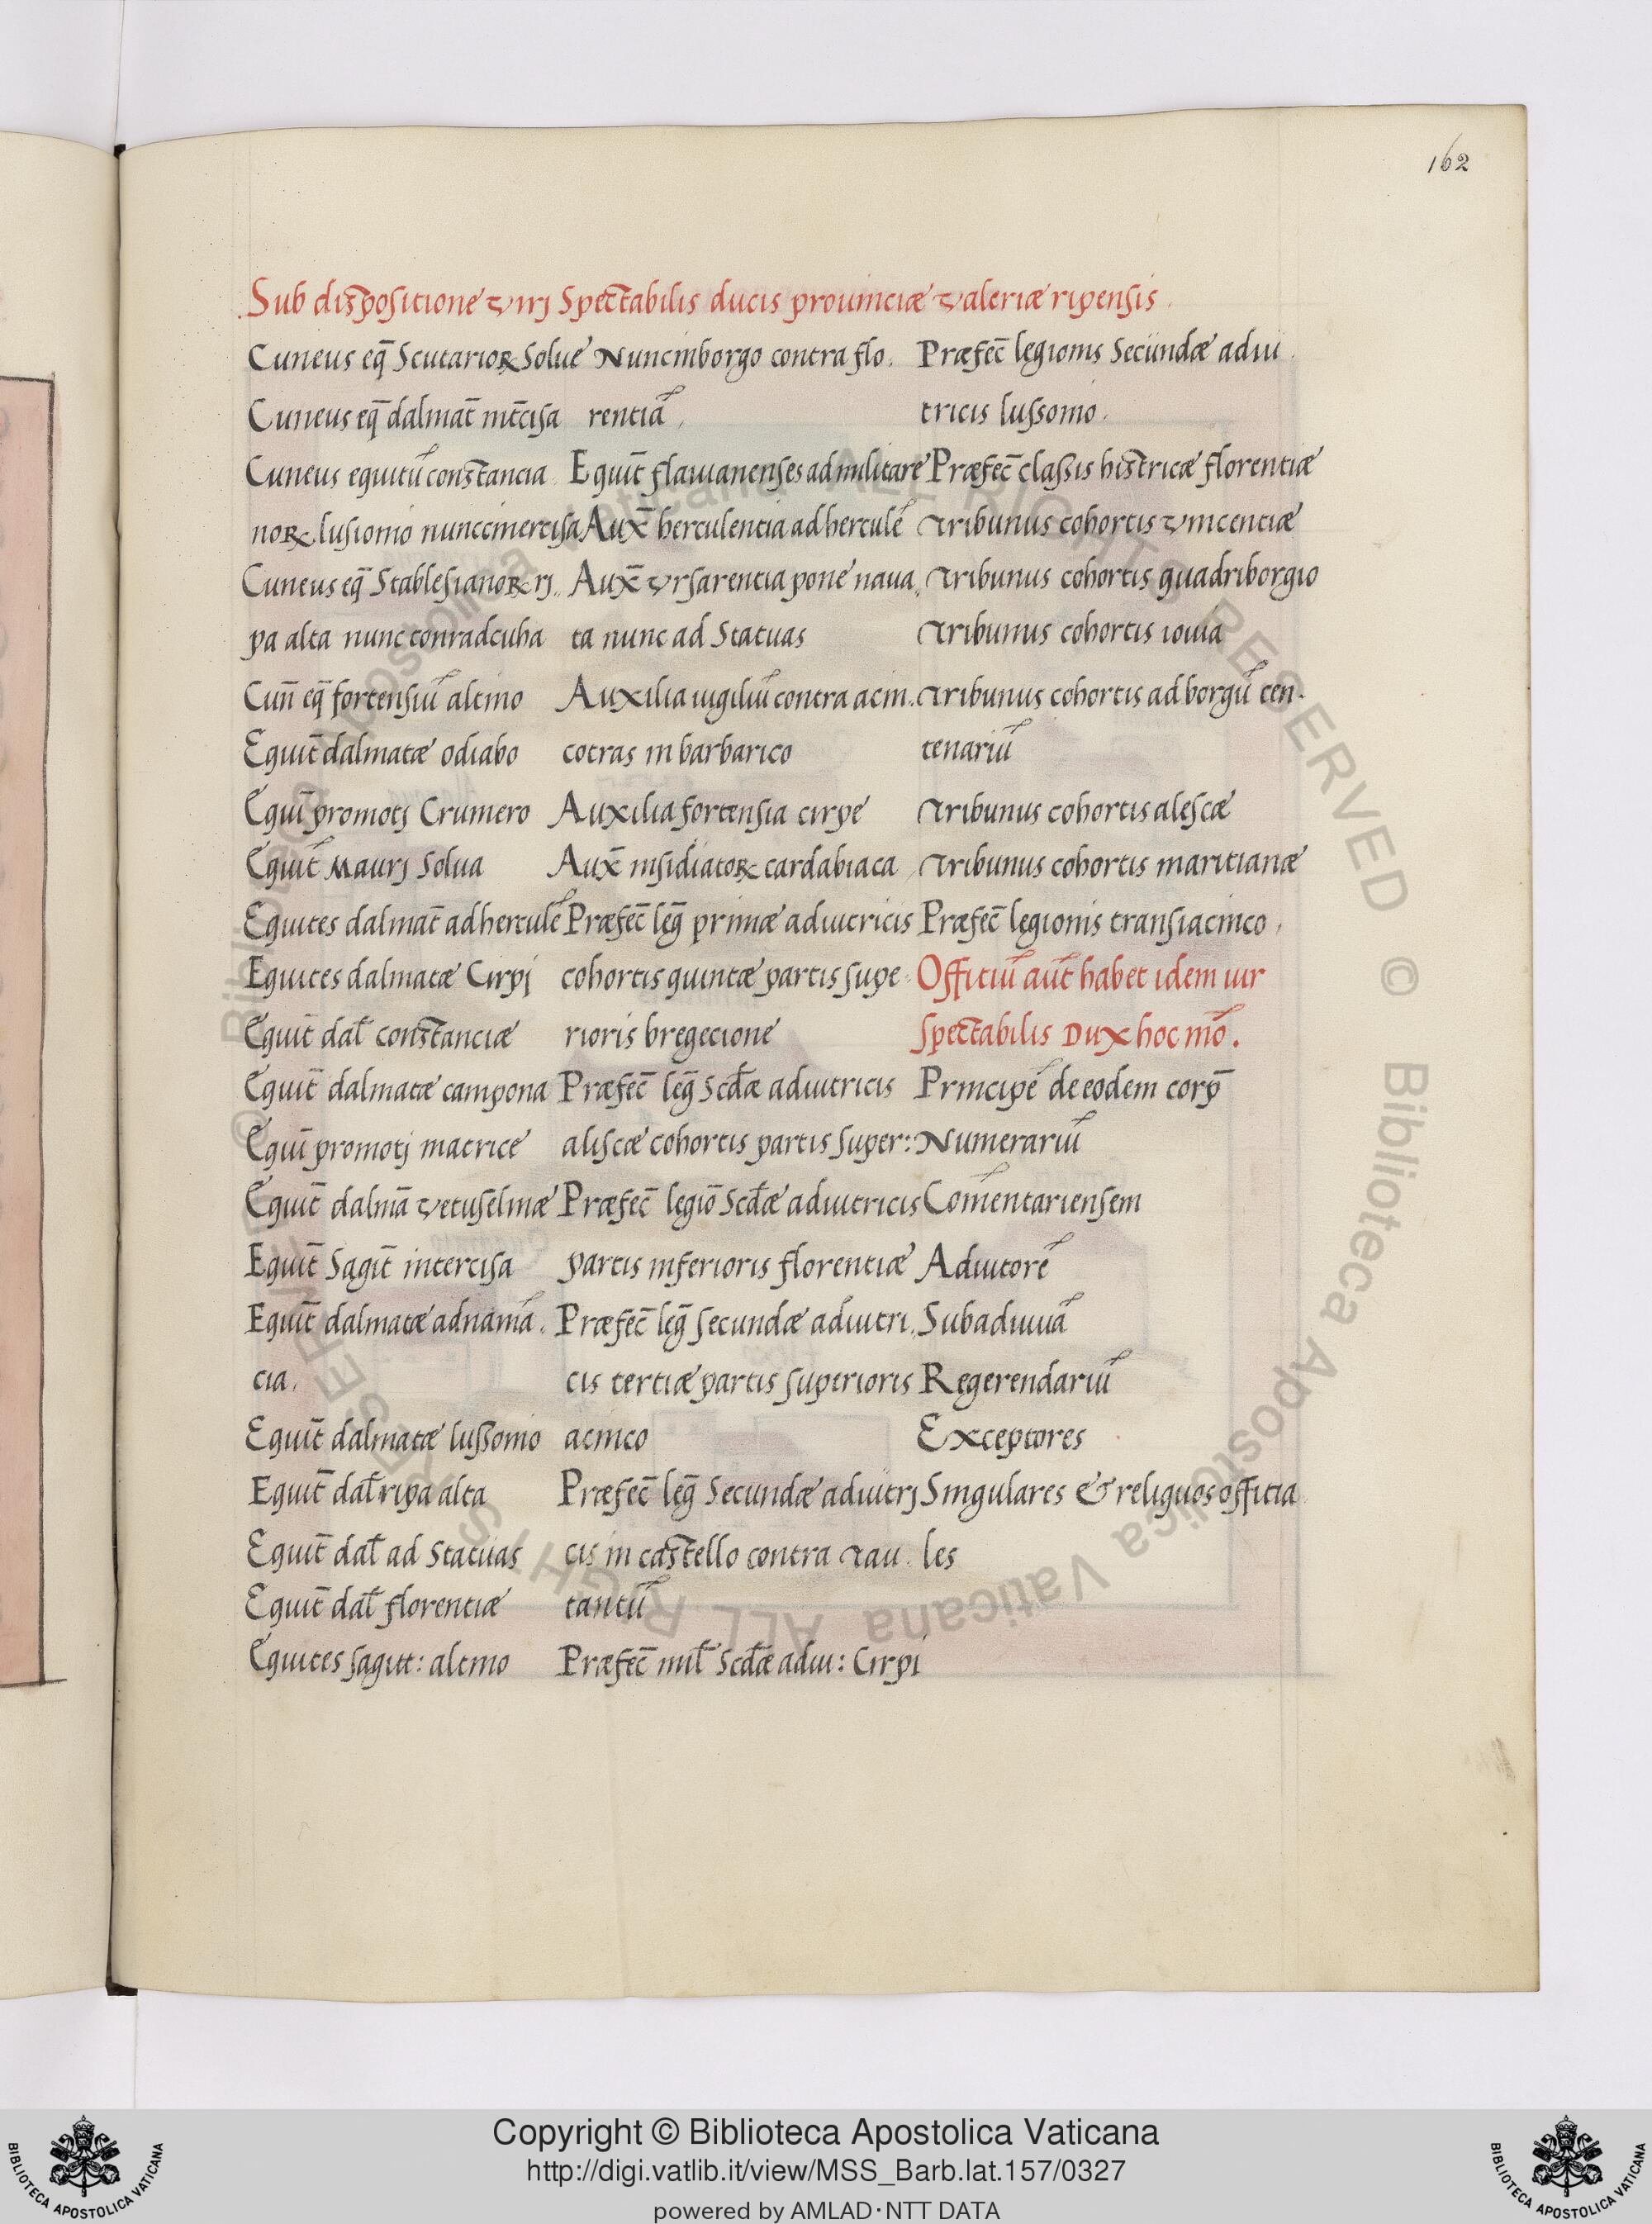 162
Sub dispositione viri Spectabilis ducis prouinciæ valeriæ ripensis.
Cuneus eq̄ Scutarioꝝ Solue
Cuneus eq̄ dalmat̄ int̄cisa
Cuneus equitū constancia
noꝝ lusionio nunc cintercisa
Cuneus eq̄ Stablesianoꝝ ri
pa alta nunc conradcuha
Cun̄ eq̄ fortensiū altino
Equit̄ dalmatæ odiabo
Equit̄ promoti Crumero
Equit̄ Mauri Solua
Equites dalmat̄ ad herculē
Equites dalmatæ Cirpi
Equit̄ dal̄ constanciæ
Equit̄ dalmatæ campona
Equit̄ promoti matrice
Equit̄ dalmā vetuselinæ
Equit̄ Sagit̄ intercisa
Equit̄ dalmatæ adnamā.
cia.
Equit̄ dalmatæ lussonio
Equit̄ dal̄ ripa alta
Equit̄ dal̄ ad Statuas
Equit̄ dal̄ florentiæ
Equites sagitt: altino
Nuncinborgo contra flo.
rentiā.
Equit̄ flauianenses ad militare
Aux̄ herculentia ad herculē
Aux̄ vrsarentia pone naua
ta nunc ad Statuas
Auxilia uigiliū contra acin.
cotras in barbarico
Auxilia fortensia cirpe
Aux̄ insidiatoꝝ cardabiaca
Præfec̄ leḡ primæ adiutricis
cohortis quintæ partis supe
rioris bregecione
Præfec̄ leḡ Scd̄æ adiutricis
aliscæ cohortis partis super:
Præfec̄ legiō Scd̄æ adiutricis
partis inferioris florentiæ
Præfec̄ leḡ secundæ adiutri.
cis tertiæ partis superioris
acinco
Præfec̄ leḡ Secundæ adiutri
cis in castello contra Tau
tantū
Præfec̄ mil̄ Scd̄æ adiu: Cirpi
Præfec̄ legionis Secundæ adiu
tricis lussonio.
Præfec̄ classis histricæ florentiæ
Tribunus cohortis vincentiæ
Tribunus cohortis quadriborgio
Tribunus cohortis iouia
Tribunus cohortis ad borgū cen.
tenariū
Tribunus cohortis alescæ
Tribunus cohortis maritianæ
Præfec̄ legionis transiacinco.
Offitiū aut̄ habet idem uir
spectabilis Dux hoc mō.
Principē de eodem corp̄
Numerariū
Com̄entariensem
Adiutorē
Subadiuuā
Regerendariū
Exceptores
Singulares & reliquos offitia
les
© Biblioteca Apostolica Vaticana ALL RIGHTS RESERVED © Biblioteca Apostolica Vaticana ALL RIGHTS RESERVED
Copyright © Biblioteca Apostolica Vaticana
http://digi.vatlib.it/view/MSS_Barb.lat.157/0327
powered by AMLAD·NTT DATA
BIBLIOTECA APOSTOLICA VATICANA
BIBLIOTECA APOSTOLICA VATICANA